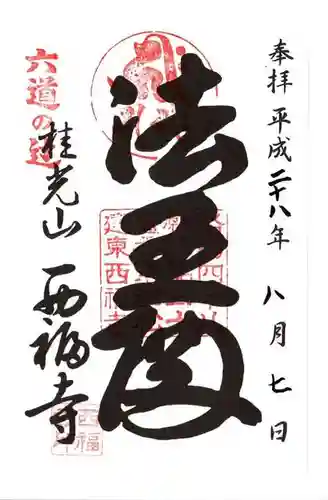 奉拝 平成二十八年 八月七日
法王閣
六道の辻
桂光山 西福寺
西福